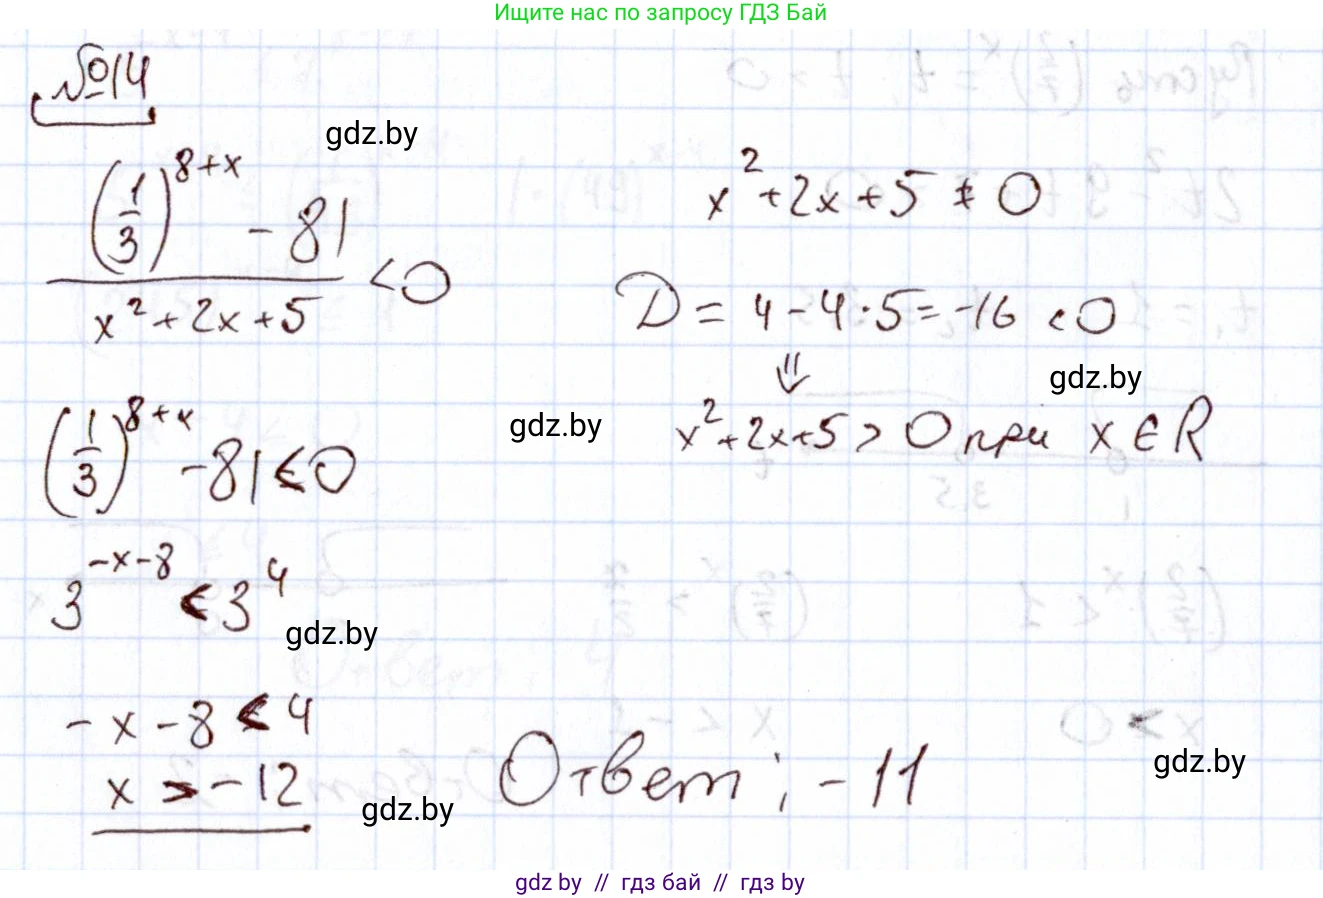 Ищите нас по запросу ГДЗ Бай
№14
gdz.by
((1/3)^(8+x) - 81)/(x² + 2x + 5) < 0
x² + 2x + 5 ≠ 0
D = 4 - 4·5 = -16 < 0
⇓
gdz.by
x² + 2x + 5 > 0 при x ∈ R
(1/3)^(8+x) - 81 < 0
gdz.by
3^(-x-8) < 3^4
gdz.by
-x - 8 < 4
x > -12
Ответ: -11
gdz.by
gdz.by
gdz by // гдз бай // gdz by